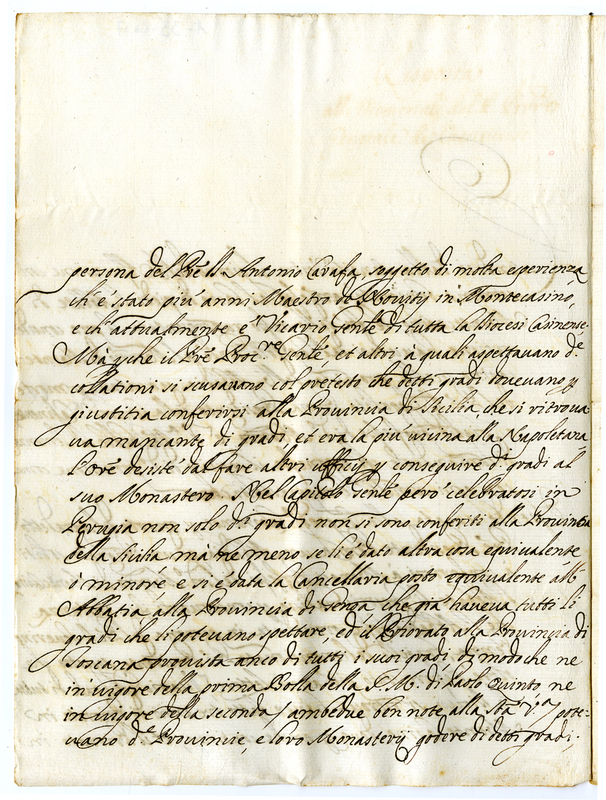 persona del Pře D. Antonio Carafa, soggetto di molta esperienza
ch'è stato più anni Maestro de Novitij in Montecasino,
e ch'attualmente è Vicario Genle di tutta la Diocesi Casinense.
Mà perche il Pře Proc.re Genle, et altri à quali aspettavano d.e
collationi si scusavano col pretesto che detti gradi dovevano p
giustitia conferirsi alla Provincia di Sicilia, che si ritrova
va mancante di gradi, et era la più vicina alla Napoletana
l'Ore desistè dal fare altri ufficij p conseguire d.i gradi al
suo Monastero. Nel Capitolo Genle però celebratosi in
Perugia non solo d.i gradi non si sono conferiti alla Provintia
della Sicilia mà ne meno se li è dato altra cosa equivalente
ò minore, e si è data la Cancellaria posto equivalente all'
Abbatia, alla Provincia di Genoa che già haveva tutti li
gradi che li potevano spettare, ed il Priorato alla Provincia di
Toscana provista anco di tutti i suoi gradi di modoche ne
in vigore della prima Bolla della S. M. di Paolo Quinto, ne
in vigore della seconda / ambedue ben note alla Stà V.ra / pote-
vano d.e Provincie, e loro Monasterij godere di detti gradi,